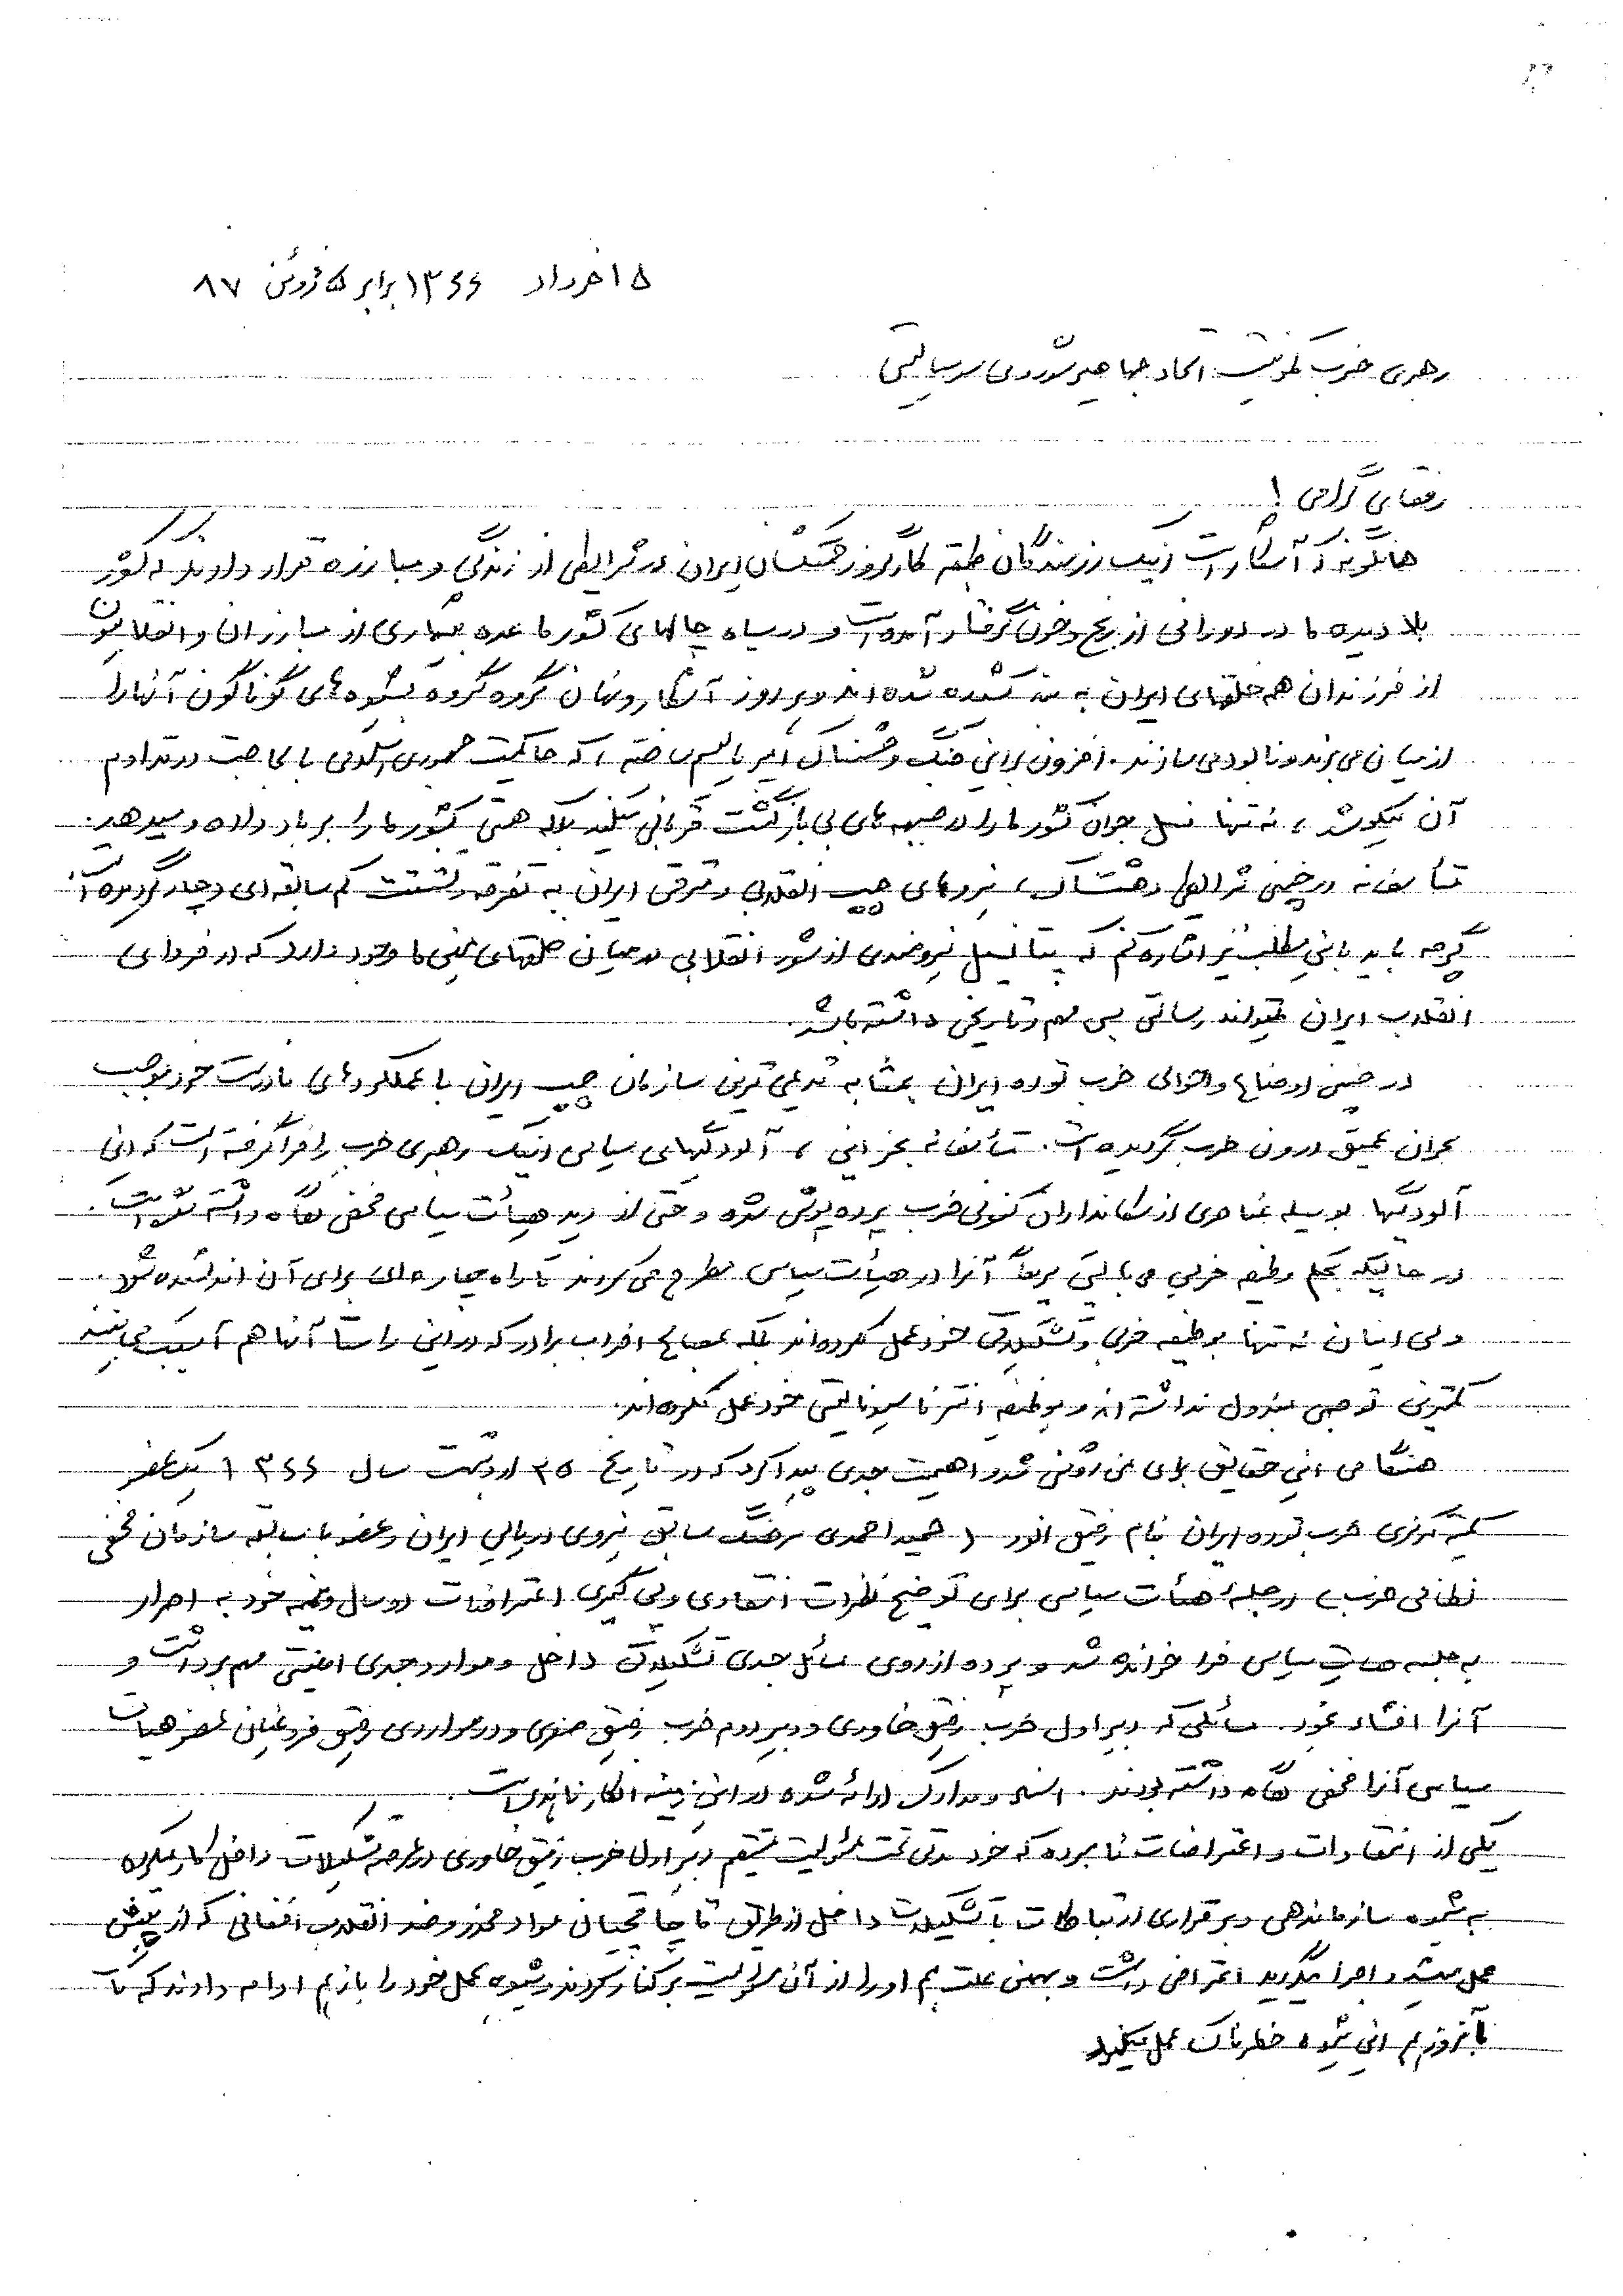 ۱۵ خرداد ۱۳۶۶ برابر ۵ ژوئن ۸۷
رهبری حزب کمونیست اتحاد جماهیر شوروی سوسیالیستی
رفقای گرامی !
همانگونه که آشکار است اینک رزمندگان طبقه کارگر و زحمتکشان ایران در شرایطی از زندگی و مبارزه قرار دارند که کشور
بلا دیده ما در دورانی از رنج و خون گرفتار آمده است و در سیاه چالهای کشور ما عده بیشماری از مبارزان و انقلابیون
از فرزندان همه خلقهای ایران به بند کشیده شده اند و هر روز آشکار و نهان گروه گروه بشیوه های گوناگون آنها را
از میان می برند و نابود می سازند. افزون بر این جنگ وحشتناک امپریالیسم ساخته ، که حاکمیت جمهوری اسلامی با لجاجت در تداوم
آن میکوشد ، نه تنها نسل جوان کشور ما را در جبهه های بی بازگشت قربانی میکند بلکه هستی کشور ما را بر باد داده و میدهد.
متأسفانه در چنین شرایط دهشتناک ، نیروهای چپ انقلابی و مترقی ایران به تفرقه و تشتت کم سابقه ای دچار گردیده است.
گرچه باید باین مطلب نیز اشاره کنم که پتانسیل نیرومندی از شور انقلابی در میان خلقهای میهن ما وجود دارد که در فردای
انقلاب ایران میتواند رسالتی بس مهم و تاریخی داشته باشد.
در چنین اوضاع و احوالی حزب توده ایران بمثابه قدیمی ترین سازمان چپ ایران با عملکردهای نادرست خود موجب
بحران عمیق درون حزب گردیده است. متأسفانه بجز این ، آلودگیهای سیاسی اینک رهبری حزب را فرا گرفته است که این
آلودگیها بوسیله عناصری از سکانداران کنونی حزب پرده پوشی شده و حتی از دید هیأت سیاسی مخفی نگاه داشته شده است.
در حالیکه بحکم وظیفه حزبی می بایستی سریعاً آنرا در هیأت سیاسی مطرح می کردند تا راه چاره ای برای آن اندیشیده شود.
ولی اینان نه تنها بوظیفه حزبی و تشکیلاتی خود عمل نکرده اند بلکه بمصالح احزاب برادر که در این راستا آنها هم آسیب می بینند
کمترین توجهی مبذول نداشته اند و بوظیفه انترناسیونالیستی خود عمل نکرده اند.
هنگامی این حقایق برای من روشن شد و اهمیت جدی پیدا کرد که در تاریخ ۲۵ اردیبهشت سال ۱۳۶۶ یک عضو
کمیته مرکزی حزب توده ایران بنام رفیق انور ( حمید احمدی سرهنگ سابق نیروی دریایی ایران و عضو با سابقه سازمان مخفی
نظامی حزب ) در جلسه هیأت سیاسی برای توضیح نظرات انتقادی و پی گیری اعتراضات دو سال و نیمه خود به اصرار
به جلسه هیأت سیاسی فرا خوانده شد و پرده از روی مسائل جدی تشکیلات داخل و موارد جدی امنیتی مهم برداشت و
آنرا افشاء نمود. مسائلی که دبیر اول حزب رفیق خاوری و دبیر دوم حزب رفیق صفری و در مواردی رفیق فروغیان عضو هیأت
سیاسی آنرا مخفی نگاه داشته بودند. اسناد و مدارک ارائه شده در این زمینه انکار ناپذیر است.
یکی از انتقادات و اعتراضات نامبرده که خود مدتی تحت مسئولیت مستقیم دبیر اول حزب رفیق خاوری در عرصه تشکیلات داخل کار میکرده
به شیوه سازماندهی و برقراری ارتباطات با تشکیلات داخل از طریق قاچاقچیان مواد مخدر و ضد انقلاب افغانی که از پیش
عمل میشد و اجرا میگردید اعتراض داشت و بهمین علت هم او را از آن مسئولیت برکنار کردند و شیوه عمل خود را باز هم ادامه دادند که تا
بامروز هم این شیوه خطرناک عمل میکنند